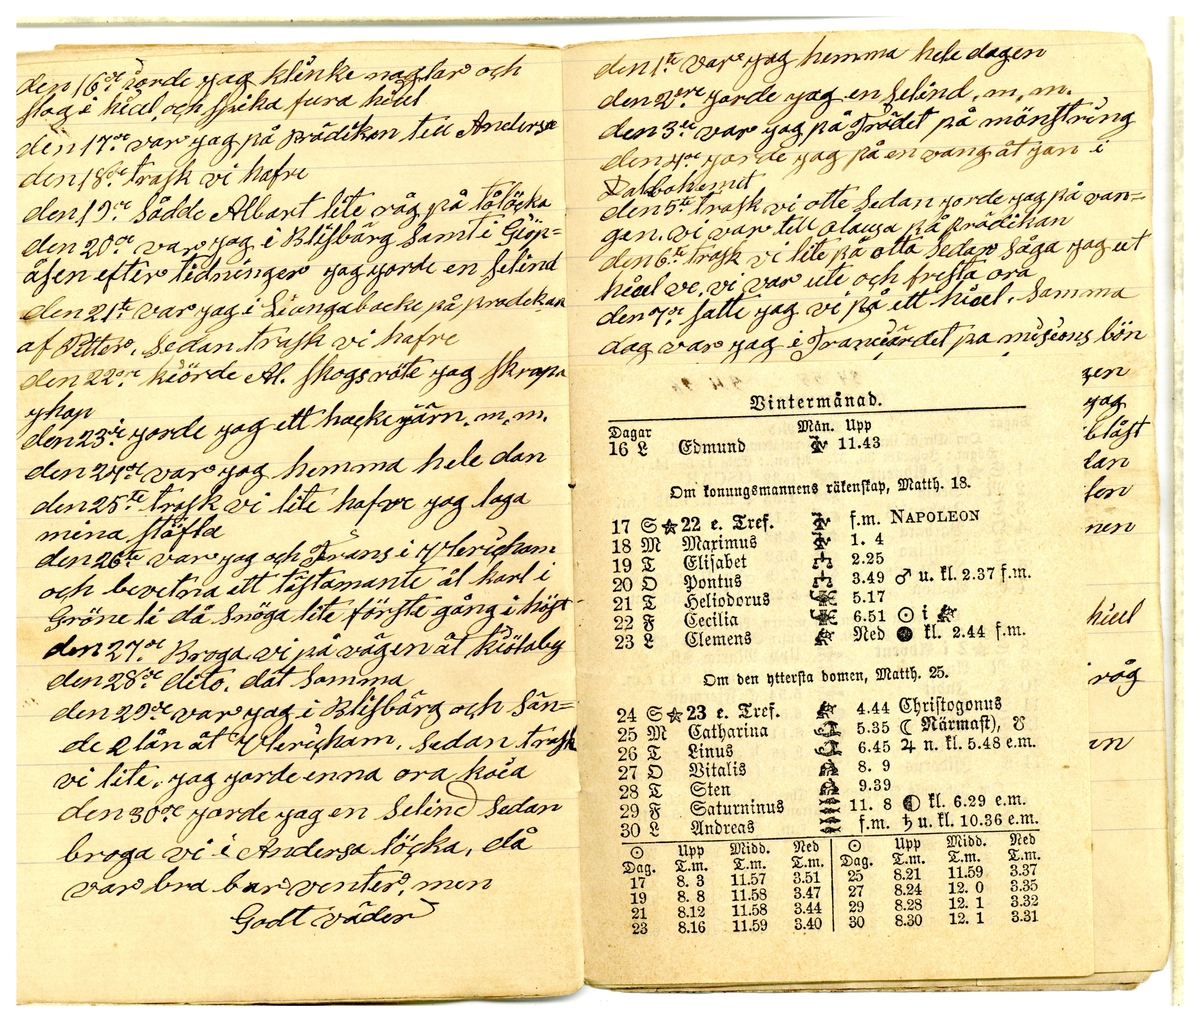 den 16de jorde jag klinke naglar och
slog i hiul, och spika fura hiul
den 17de var jag på prädikan till Andersa
den 18de trask vi hafre
den 19de Sådde Albart lite råg på tålöçka
den 20de var jag i Blisbärg Samt i Giöp=
åsen efter tidninger jag jorde en Selind
den 21te var jag i Liongabacke på prädikan
af Petter. Sedan trask vi hafre
den 22dre kiörde Al. skogsröte jag skrapa
yhop
den 23die jorde jag ett hacke järn. m. m.
den 24de var jag hemma hele dan
den 25te trask vi lite hafre jag laga
mina stöfla
den 26te var jag och Frans i
och bevetna ett tästamante åt karl i
Gröne li då Snöga lite förste gång i höst
den 27de Broga vi på vägen åt kiötaby
den 28de dito. dät Samma
den 29de var jag i Blisbärg och Sän=
de 2 lån åt Sedan trask
vi lite. jag jorde enna ora koia
den 30de jorde jag en Selind Sedan
broga vi i Andersa löçka, då
var bra bar venter, men
Godt väder
den 1te var jag hemma hele dagen
den 2dre jorde jag en Selind. m. m.
den 3de var jag på Trådet på mönstring
den 4de jorde jag på en vang åt jan i
Dalbohemet
den 5te trask vi otte Sedan jorde jag på van=
gen. vi var till olausa på prädikan
den 6te trask vi lite på otta Sedan Såga jag ut
hiul ve. vi var ute och fresta ora
den 7de satte jag vi på ett hiul. Samma
dag var jag i på misions bön
Vintermånad.
Dagar Mån. Upp
16 L Edmund 11.43
Om konungsmannens räkenskap, Matth. 18.
17 S ★ 22 e. Tref. f.m. NAPOLEON
18 M Maximus 1. 4
19 T Elisabet 2.25
20 O Pontus 3.49 ♂ u. kl. 2.37 f.m.
21 T Heliodorus 5.17
22 F Cecilia 6.51 ☉ i ♐
23 L Clemens Ned ● kl. 2.44 f.m.
Om den yttersta domen, Matth. 25.
24 S ★ 23 e. Tref. 4.44 Christogonus
25 M Catharina 5.35 ☾ Närmast), ☋
26 T Linus 6.45 ♃ n. kl. 5.48 e.m.
27 O Vitalis 8. 9
28 T Sten 9.39
29 F Saturninus 11. 8 ◐ kl. 6.29 e.m.
30 L Andreas f.m. ♄ u. kl. 10.36 e.m.
☉ Upp Midd. Ned ☉ Upp Midd. Ned
Dag. T.m. T.m. T.m. Dag. T.m. T.m. T.m.
17 8. 3 11.57 3.51 25 8.21 11.59 3.37
19 8. 8 11.58 3.47 27 8.24 12. 0 3.35
21 8.12 11.58 3.44 29 8.28 12. 1 3.32
23 8.16 11.59 3.40 30 8.30 12. 1 3.31
gen
jag
blåst
lan
nen
hiul
råg